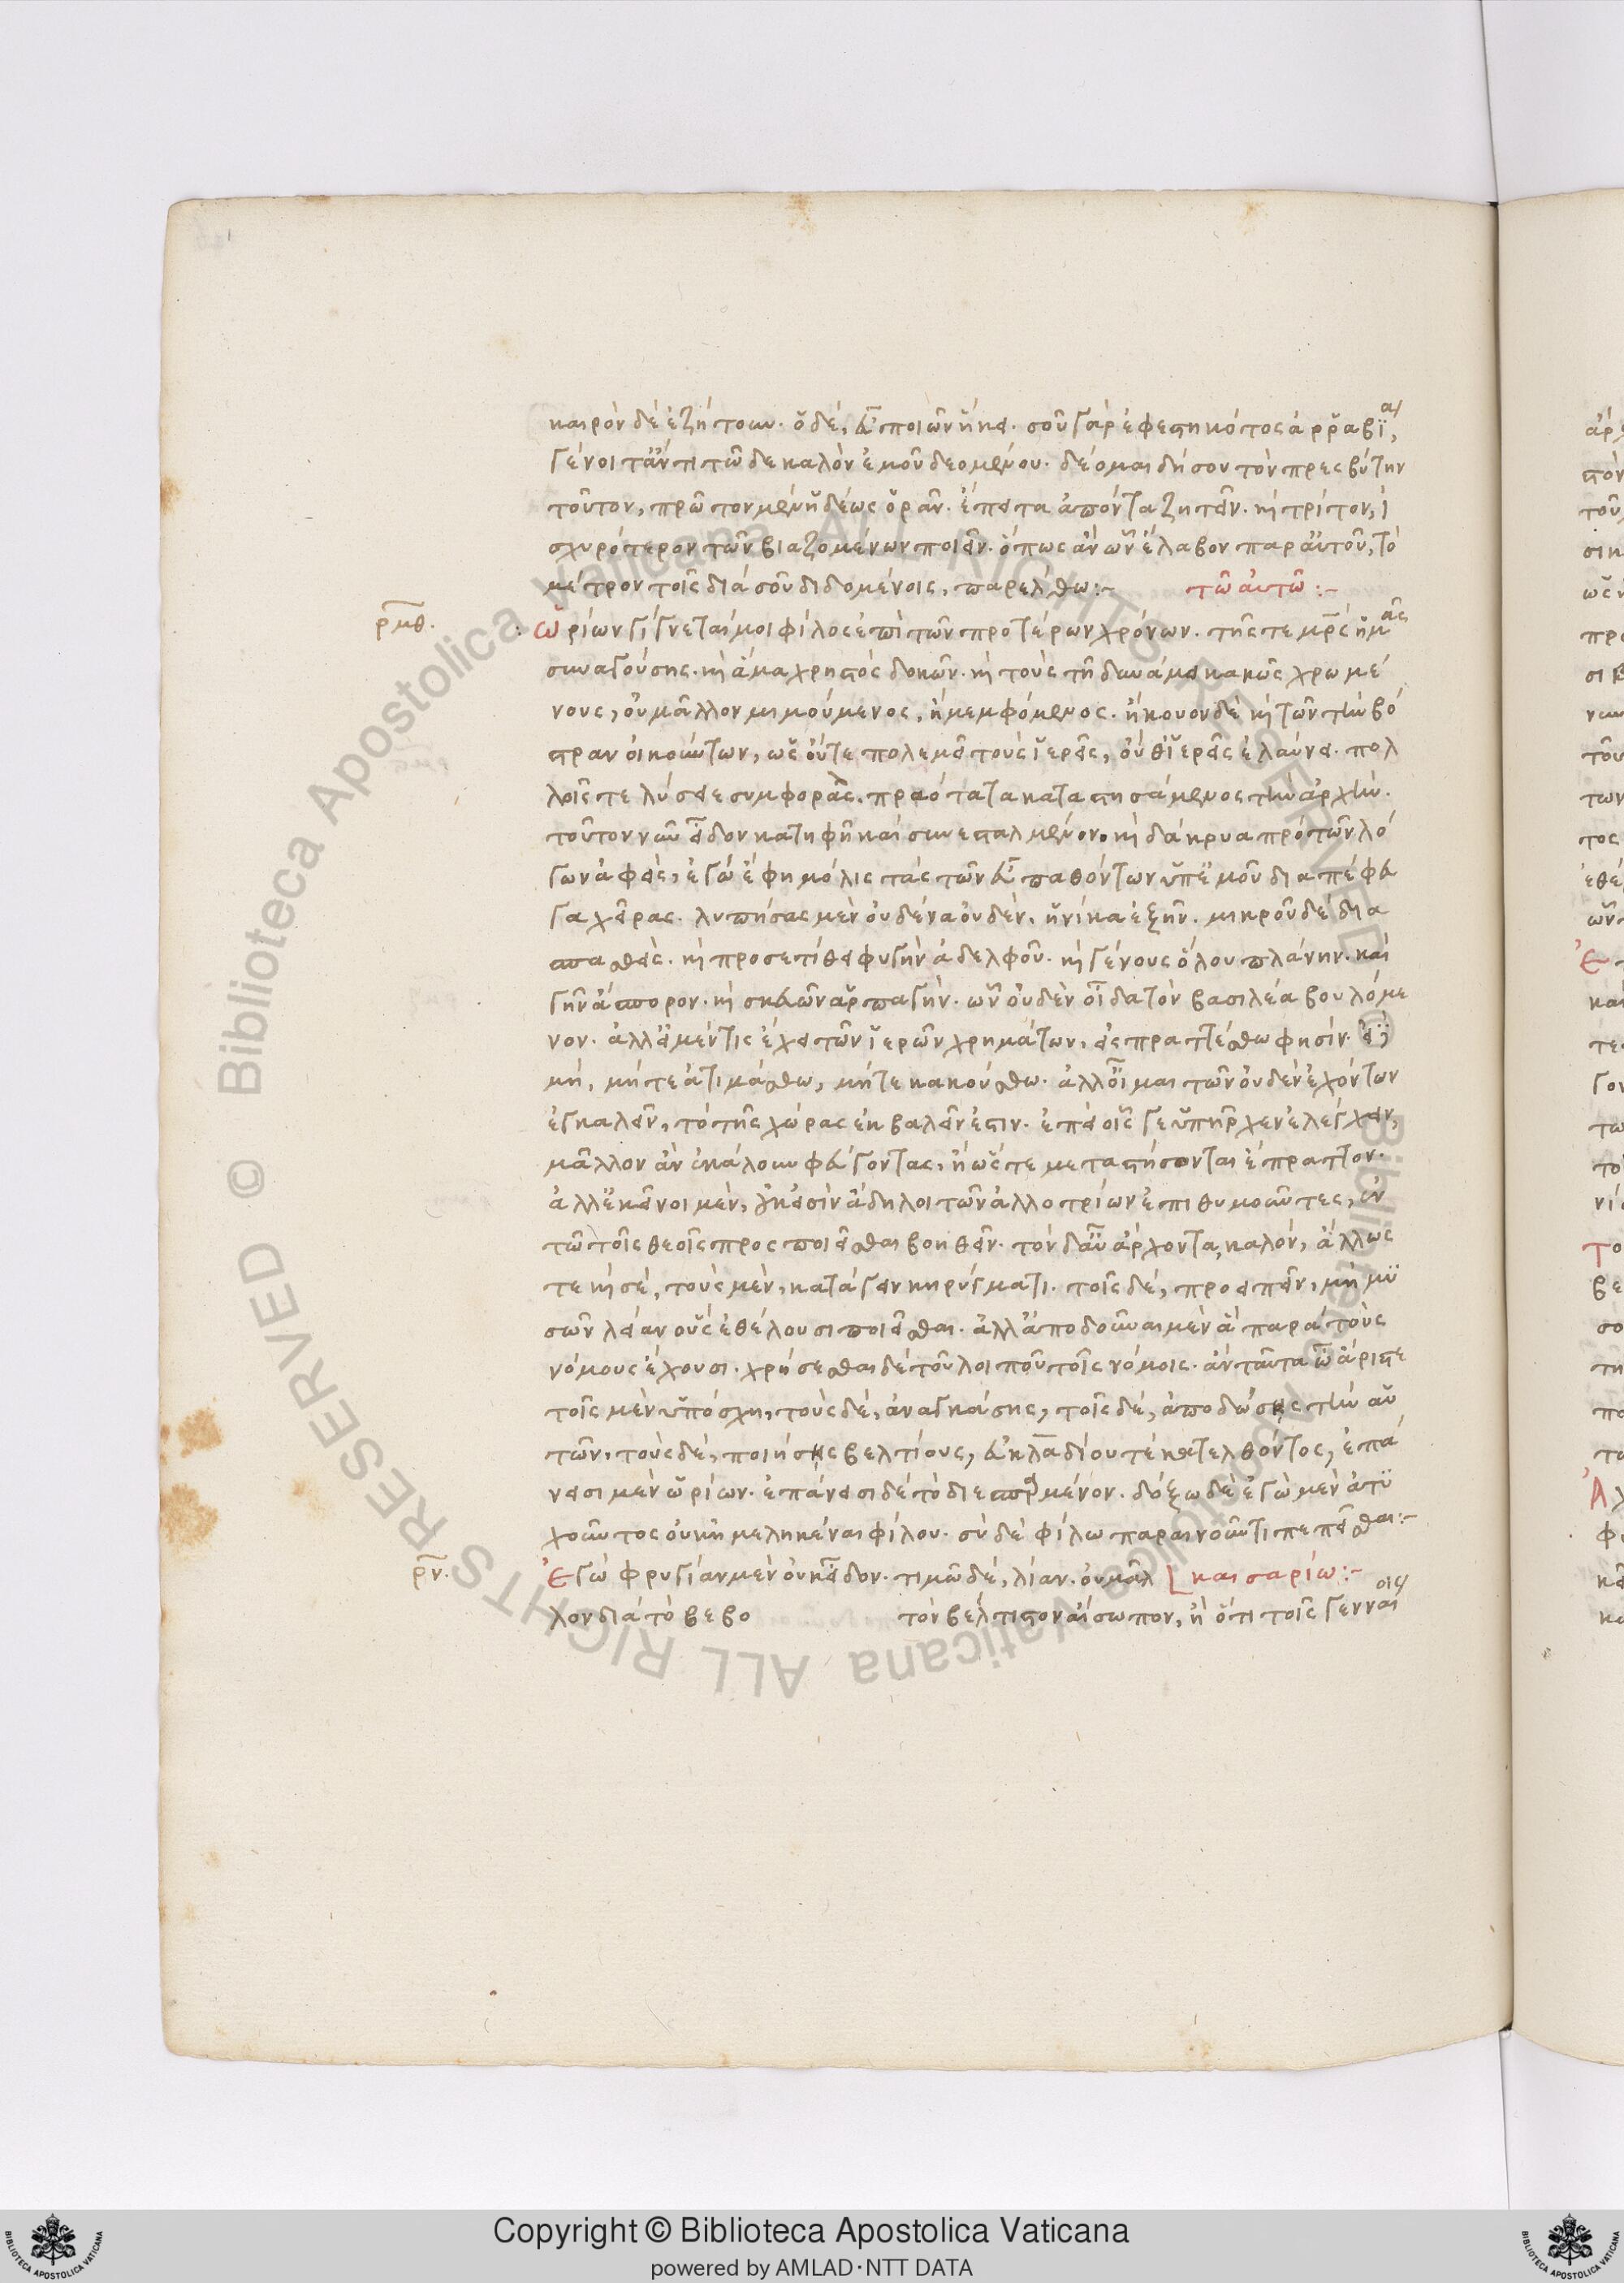 καιρὸν δὲ ἐζήτουν. ὁ δέ, εὖ ποιῶν ἥκει. σοῦ γὰρ ἐφεστηκότος ἀρραβίαι,
γένοιτ' ἄν τι τῶ δε καλὸν ἐμοῦ δεομένου. δέομαι δή σου τὸν πρεσβύτην
τοῦτον, πρῶτον μὲν ἡδέως ὁρᾶν. ἔπειτα ἀπόντα ζητεῖν. καὶ τρίτον, ἰ
σχυρότερον τῶν βιαζομένων ποιεῖν. ὅπως ἂν ὧν ἔλαβον παρ' αὐτοῦ, τὸ
μέτρον τοῖς διὰ σοῦ διδομένοις, παρελθω:- τῶ αὐτῶ:-
ρμθ. Ὠρίων γίγνεταί μοι φίλος ἐπὶ τῶν προτέρων χρόνων. τῆς τε μρς ἡμᾶς
συναγούσης. καὶ ἅμα χρηστὸς δοκῶν. καὶ τοὺς τῆ δυνάμει κακῶς χρωμέ
νους, οὐ μᾶλλον μιμούμενος, ἢ μεμφόμενος. ἤκουον δὲ καὶ τῶν τὴν βό
στραν οἰκούντων, ὡς οὔτε πολεμεῖ τοὺς ἱερεῖς, οὔθ' ἱερεῖς ἐλαύνει. πολ
λοῖς τε λύσειε συμφοράς. πραότατα καταστησάμενος τὴν ἀρχήν.
τοῦτον νῦν εἶδον κατηφῆ καὶ συνεσταλμένον. καὶ δάκρυα πρὸ τῶν λό
γων ἀφείς, ἐγὼ ἔφη μόλις τὰς τῶν εὖ παθόντων ὑπ' ἐμοῦ διαπέφευ
γα χεῖρας. λυπήσας μὲν οὐδένα οὐδέν, ἡνίκα ἐξῆν. μικροῦ δὲ δια
σπασθείς. καὶ προσετίθει φυγὴν ἀδελφοῦ. καὶ γένους ὅλου πλάνην. καὶ
γῆν ἄσπορον. καὶ σκευῶν ἁρπαγήν. ὧν οὐδὲν οἶδα τὸν βασιλέα βουλόμε
νον. ἀλλ' εἰ μέν τις ἔχει τῶν ἱερῶν χρημάτων, εἰσπραττέσθω φησίν. εἰ
μή, μήτε ἀτιμάσθω, μήτε κακούσθω. ἀλλ' οἶμαι τῶν οὐδὲν ἐχόντων
ἐγκαλεῖν, τὸ τῆς χώρας ἐκβαλεῖν ἐστιν. ἐπεὶ οἷς γε ὑπῆρχεν ἐλέγχειν,
μᾶλλον ἂν ἐκάλουν φεύγοντας, ἢ ὥστε μεταστήσονται ἔπραττον.
ἀλλ' ἐκεῖνοι μὲν, οὐκ εἰσὶν ἄδηλοι τῶν ἀλλοτρίων ἐπιθυμοῦντες, ἐν
τῶ τοῖς θεοῖς προσποιεῖσθαι βοηθεῖν. τὸν δ' αὖ ἄρχοντα, καλόν, ἄλλως
τε καὶ σέ, τοὺς μὲν, κατάγειν κηρύγματι. τοῖς δέ, προειπεῖν, μὴ μυ
σῶν λείαν οὓς ἐθέλουσι ποιεῖσθαι. ἀλλ' ἀποδοῦναι μὲν ἃ παρὰ τοὺς
νόμους ἔχουσι. χρήσεσθαι δὲ τοῦ λοιποῦ τοῖς νόμοις. ἂν ταῦτα ὦ ἄριστε
τοῖς μὲν ὑπόσχῃ, τοὺς δέ, ἀναγκάσῃς, τοῖς δέ, ἀποδώσῃς τὴν αὑ
τῶν, τοὺς δέ, ποιήσῃς βελτίους, εὐκλαδίου τὲ κατελθόντος, ἐπαί
νεσι μὲν ὠρίων. ἐπαίνεσι δὲ τὸ διεσπαρμένον. δόξω δὲ ἐγὼ μὲν ἀτυ
χοῦντος οὐκ ἠμεληκέναι φίλου. σὺ δὲ φίλω παραινοῦντι πεπεῖσθαι:-
ρν. Ἐγὼ φρυγίαν μὲν οὐκ εἶδον. τιμῶ δέ, λίαν. οὐ μᾶλ καισαρίω:-
λον διὰ τὸ βεβο τὸν βέλτιστον αἴσωπον, ἢ ὅτι τοῖς γενναίοις